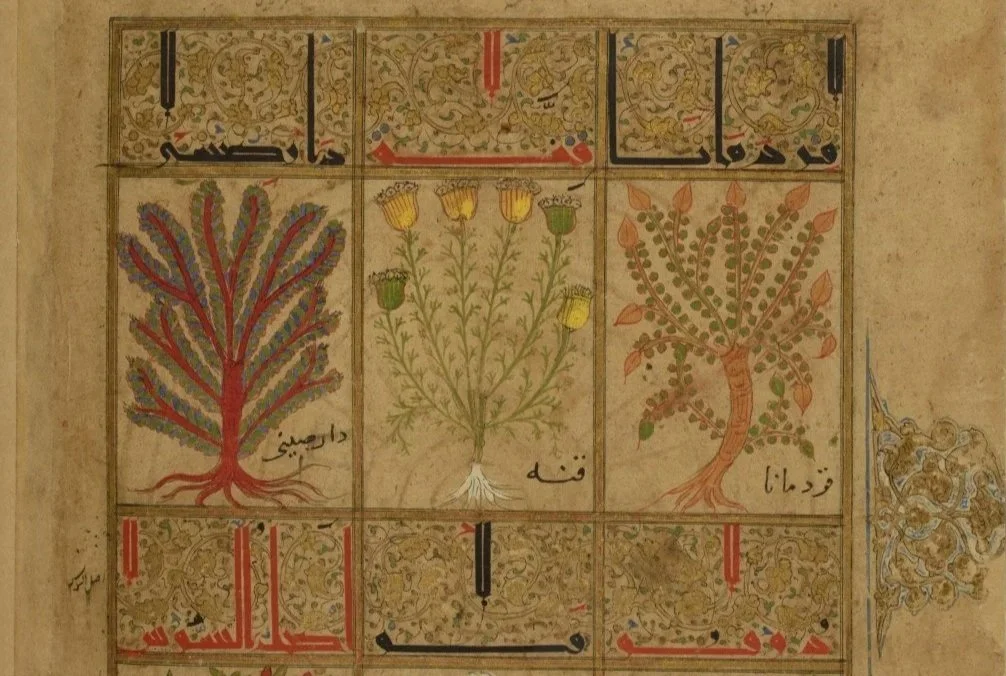 قردمانا
قنه
دارصيني
قردمانا
قنه
دارجيني
دوقو
فو
اصل السوس
اصل السوس